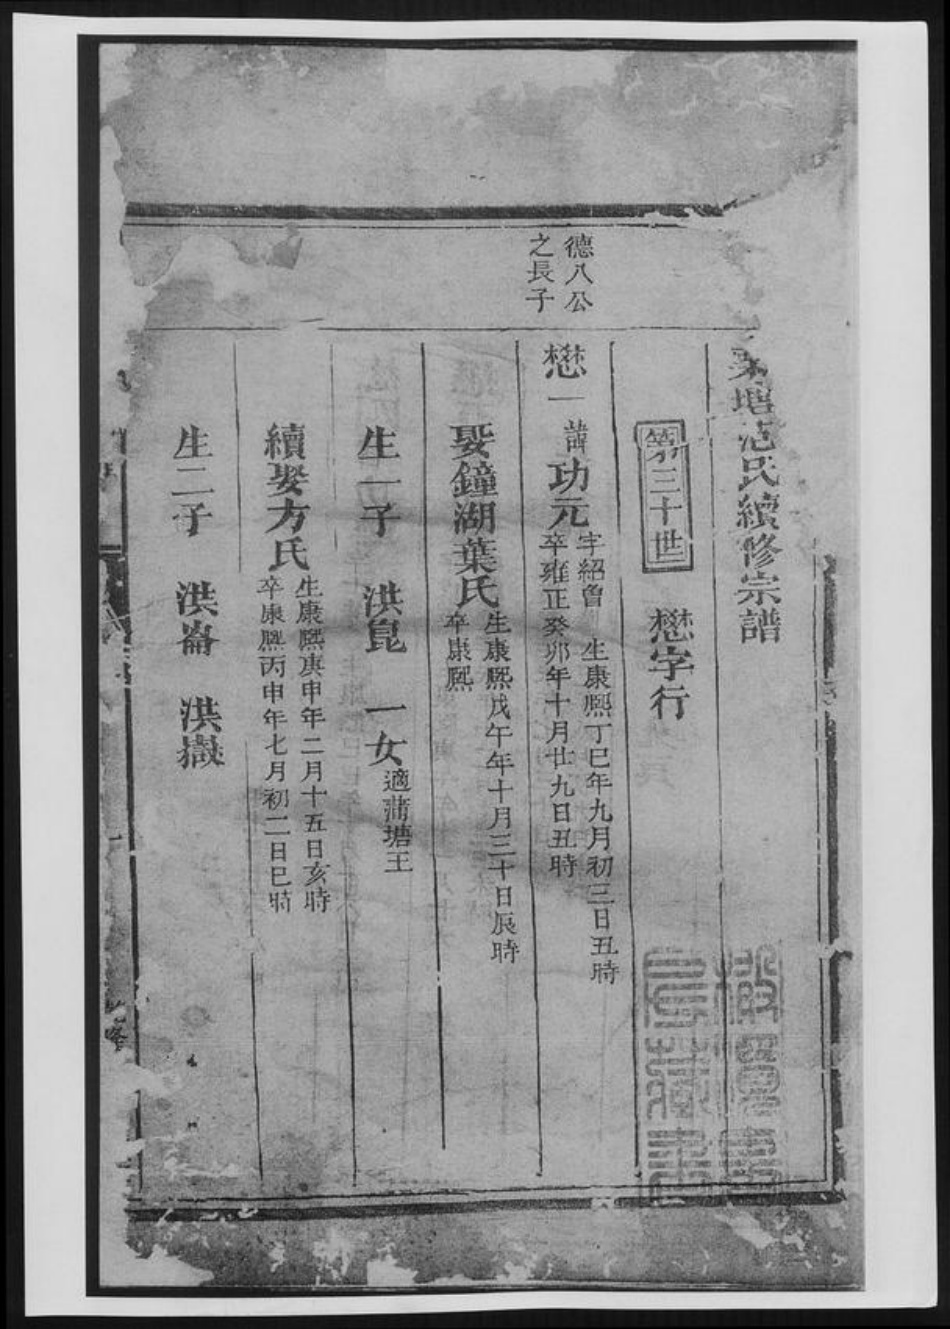 塘范氏續修宗譜
第三十世 懋字行
德八公
之長子
懋一 諱功元
字紹魯 生康熙丁巳年九月初三日丑時
卒雍正癸卯年十月廿九日丑時
娶鐘湖葉氏
生康熙戊午年十月三十日辰時
卒康熙
生一子 洪崑 一女
適蒲塘王
續娶方氏
生康熙庚申年二月十五日亥時
卒康熙丙申年七月初二日巳時
生二子 洪崙 洪嶽